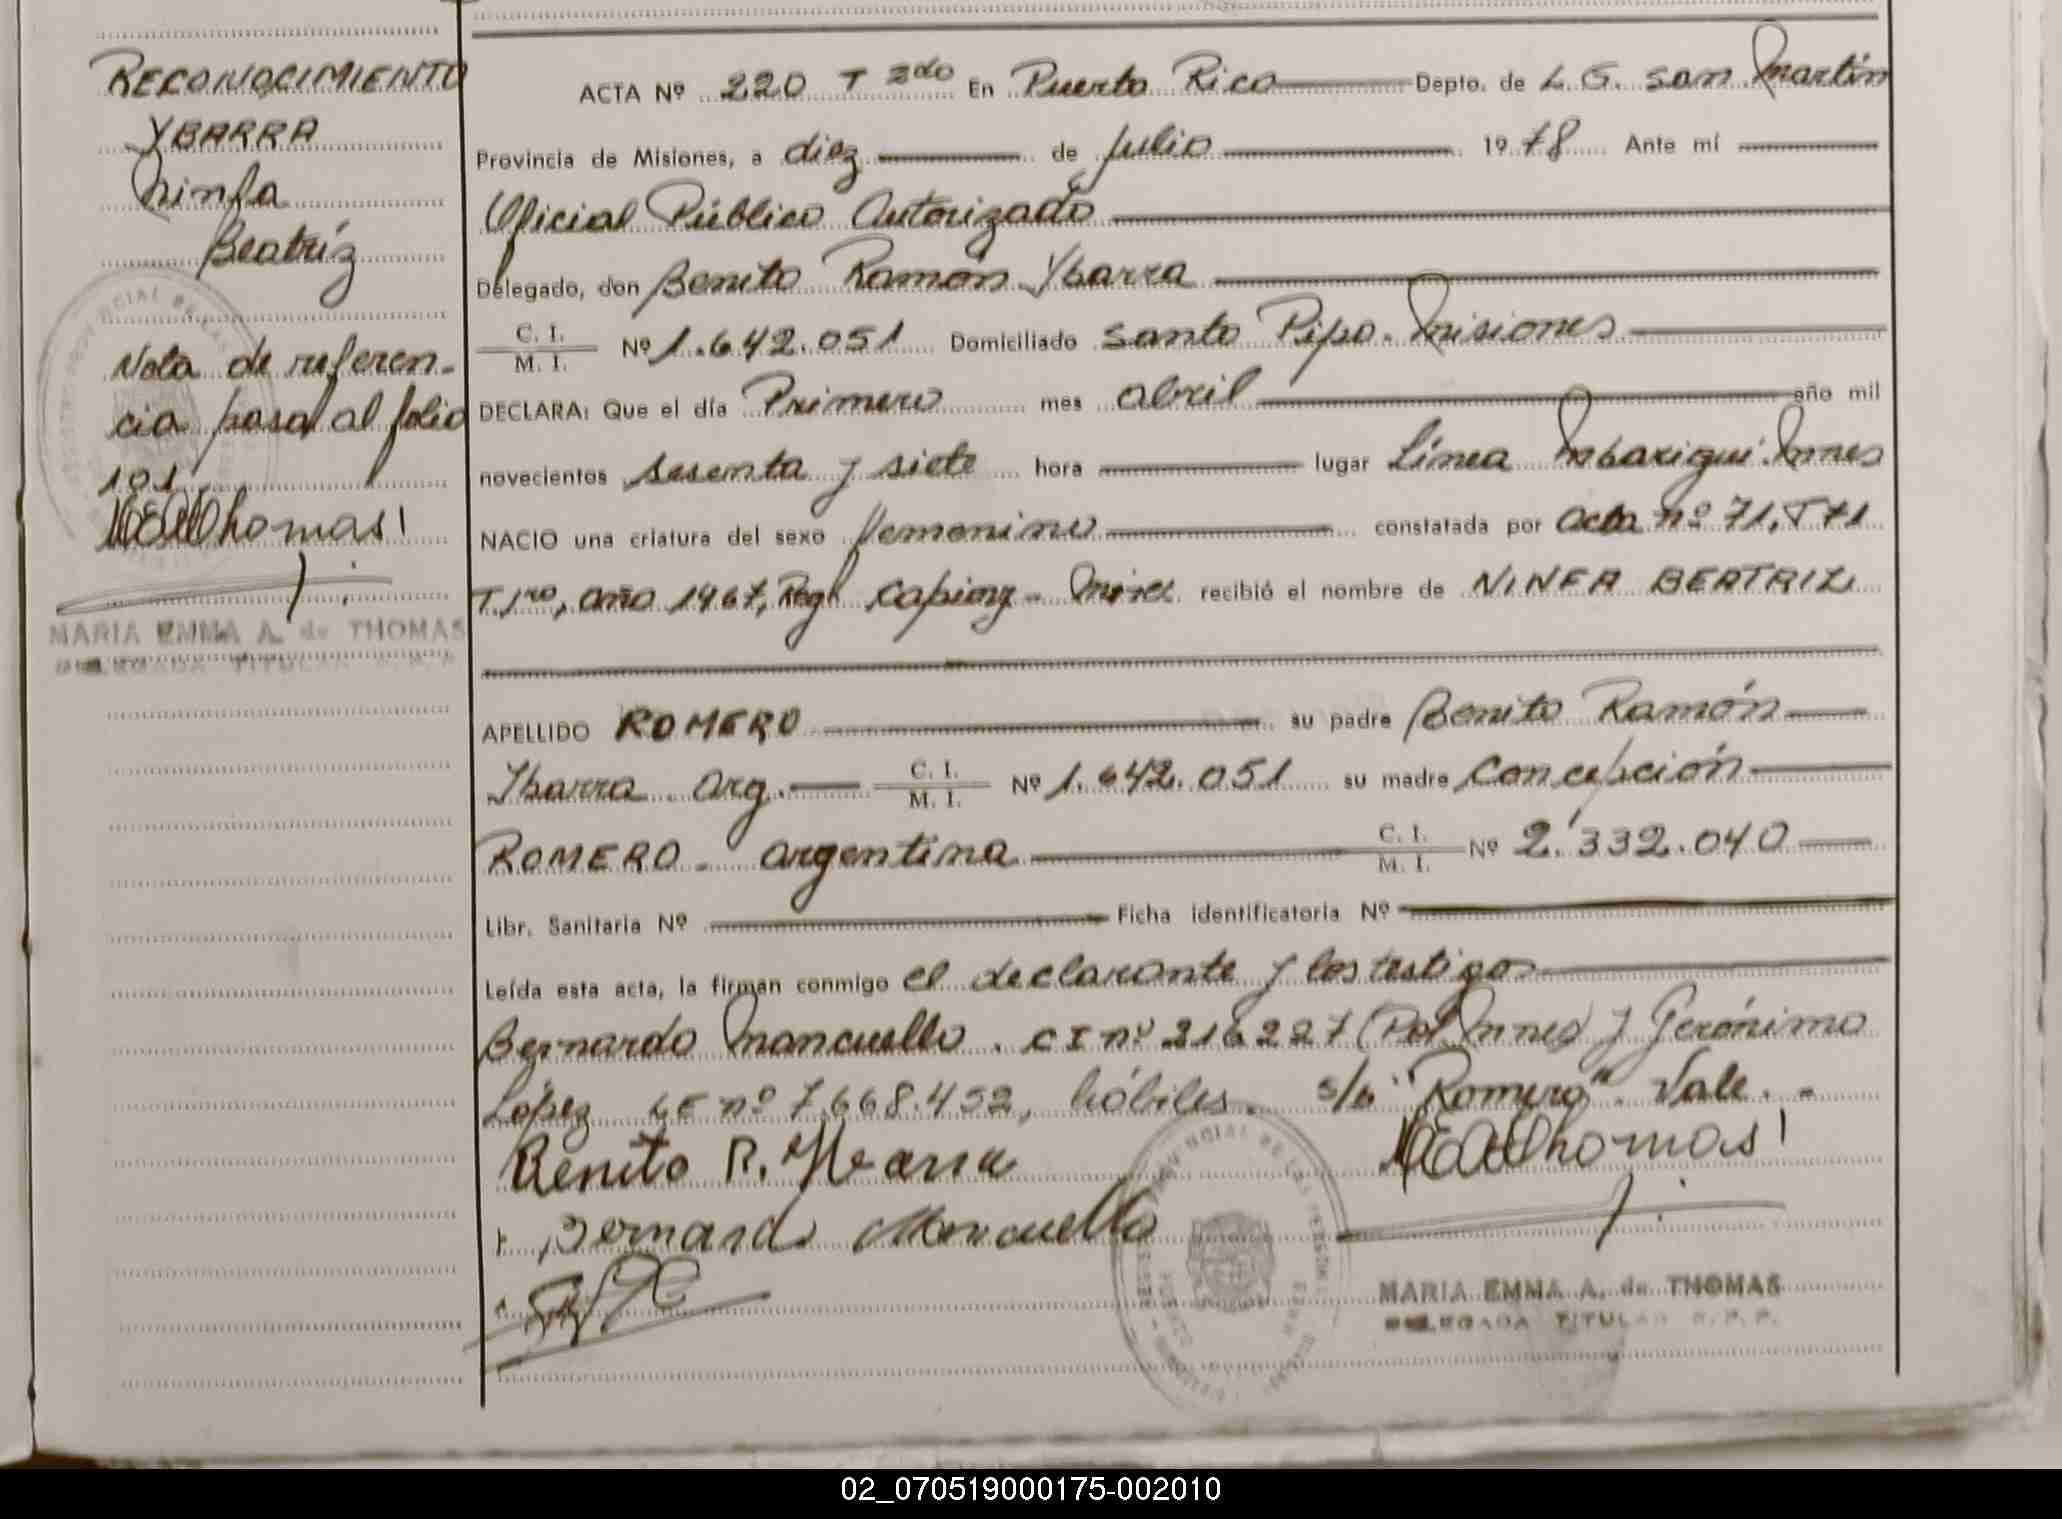 RECONOCIMIENTO
YBARRA
Ninfa
Beatríz
Nota de referen-
cia pasa al folio
101
MEAdeThomas
MARIA EMMA A. de THOMAS
DELEGADA TITULAR R.P.P.
ACTA Nº 220 T 2do En Puerto Rico Depto. de L. G. San Martín
Provincia de Misiones, a diez de julio 1978 Ante mí
Oficial Público Autorizado
Delegado, don Benito Ramón Ybarra
C. I.
M. I. Nº 1.642.051 Domiciliado Santo Pipo. Misiones
DECLARA: Que el día Primero mes abril año mil
novecientos sesenta y siete hora lugar Línea Mbarigui. Mnes
NACIO una criatura del sexo femenino constatada por acta nº 71, T
T 1ro, año 1967, Regl Capiovy - Mnes recibió el nombre de NINFA BEATRIZ
APELLIDO ROMERO su padre Benito Ramón
Ybarra arg. C. I. M. I. Nº 1.642.051 su madre Concepción
ROMERO - argentina C. I. M. I. Nº 2.332.040
Libr. Sanitaria Nº Ficha identificatoria Nº
Leída esta acta, la firman conmigo el declarante y los testigos
Bernardo Mancuello. CI nº 216227 (Pol. Mnes) y Gerónimo
López LE nº 7.668.452, hábiles. s/b "Romero". Vale. -
Benito R. Ybarra
MEAdeThomas
Bernardo Mancuello
MARIA EMMA A. de THOMAS
DELEGADA TITULAR R.P.P.
02_070519000175-002010